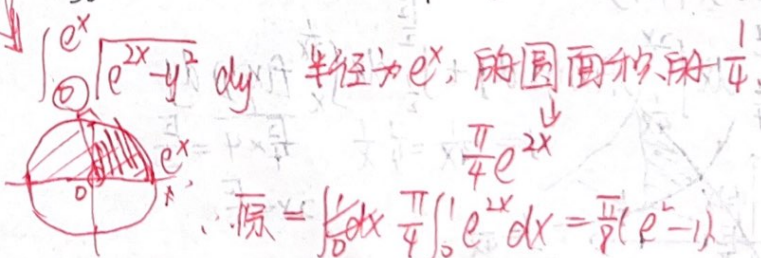 ∫₀^{e^x} √(e^{2x}-y²) dy 半径为e^x, 的圆面积的 1/4.
π/4 e^{2x}
e^x
0 x
∴ 原 = ∫₀¹ dx π/4 ∫₀¹ e^{2x} dx = π/8 (e²-1)